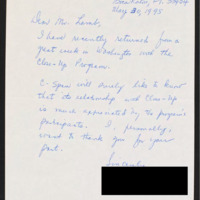 May 30, 1995
Dear Mr. Lamb,
I have recently returned from a
great week in Washington with the
Close-Up Program.
C-Span will surely like to know
that its relationship with Close-Up
is much appreciated by the program
participants. I, personally,
want to thank you for your
part.
Sincerely,